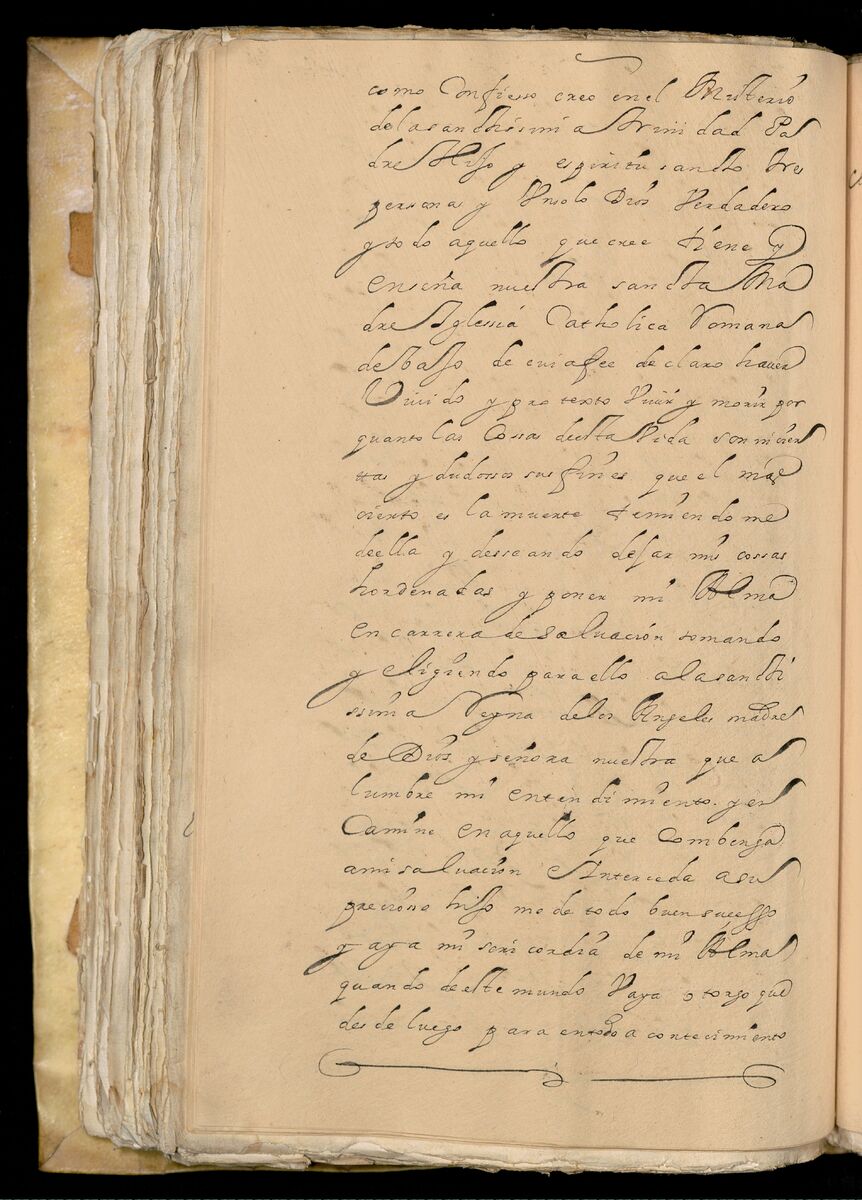 como Confieso creo en el Misterio
de la sanctissima Trinidad Pa
dre Hijo y espiritu sancto tres
personas y Un solo Dios Verdadero
y todo aquello que cree tiene y
enseña nuestra sancta Ma
dre Yglessia Catholica Romana
debajo de cuia fee declaro hauer
Viuido y protexto Viuir y morir por
quanto las Cosas desta Vida son incier
ttas y dudossos sus fines que el mas
cierto es la muerte temiendome
de ella y desseando dejar mis cossas
hordenadas y poner mi Alma
en carrera de saluacion tomando
y eligiendo para ello a la sancti
ssima Reyna de los Angeles madre
de Dios y señora nuestra que al
lumbre mi entendimiento y en
Camine en aquello que Combenga
a mi saluacion e Interceda a su
precioso hijo me de todo buen sucesso
y aya misericordia de mi Alma
quando de este mundo Vaya otorgo que
desde luego para en todo acontecimiento